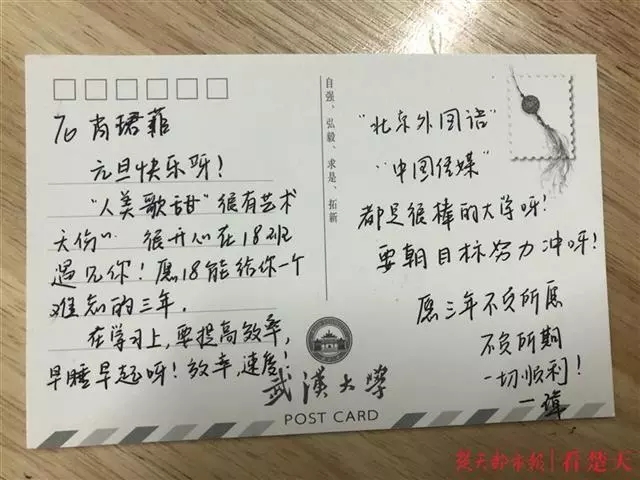 To 肖珺菲
元旦快乐呀!
“人美歌甜”很有艺术
天份~ 很开心在18班
遇见你!愿18能给你一个
难忘的三年。
在学习上,要提高效率,
早睡早起呀!效率,速度!
自强、弘毅、求是、拓新
“北京外国语”
“中国传媒”
都是很棒的大学呀!
要朝目标努力冲呀!
愿三年不负所愿
不负所期
一切顺利!
武漢大學
POST CARD
楚天都市报|看楚天